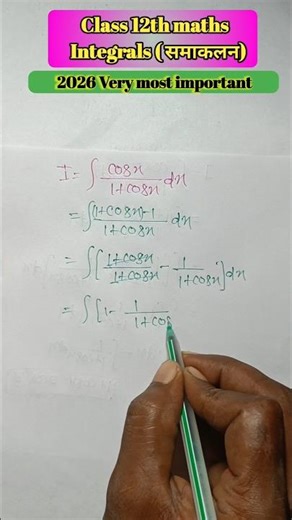 Class 12th maths
Integrals (समाकलन)
2026 Very most important
I = ∫ cosx/1+cosx dx
= ∫ (1+cosx)-1/1+cosx dx
= ∫[1+cosx/1+cosx - 1/1+cosx]dx
= ∫[1- 1/1+cos